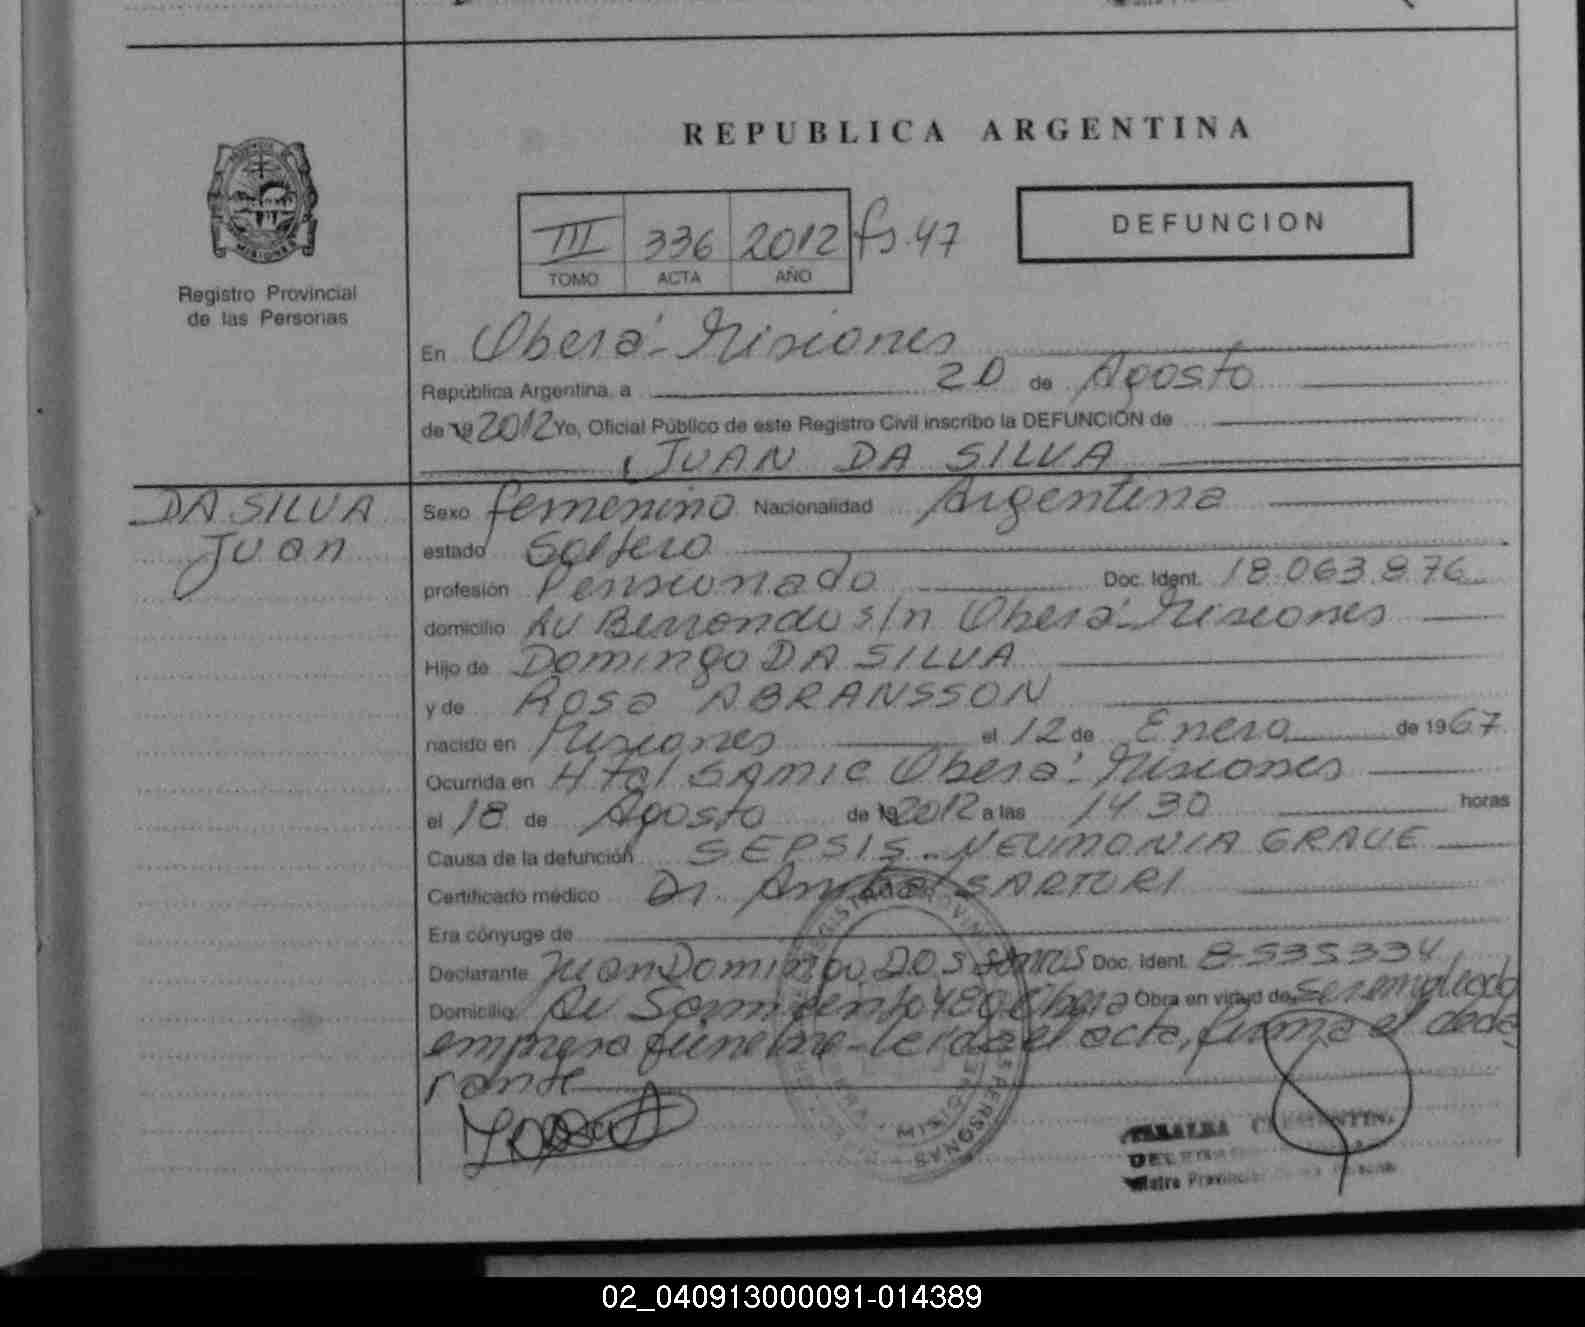 REPUBLICA ARGENTINA
III 336 2012 fs. 47
TOMO ACTA AÑO
DEFUNCION
Registro Provincial
de las Personas
En Oberá - Misiones
República Argentina, a 20 de Agosto
de 19 2012 Yo, Oficial Público de este Registro Civil inscribo la DEFUNCIÓN de
JUAN DA SILVA
DA SILVA
Juan
Sexo femenino Nacionalidad Argentina
estado Soltero
profesión Pensionado Doc. Ident. 18.063.876
domicilio Av Berrondo s/n Oberá - Misiones
Hijo de Domingo DA SILVA
y de Rosa ABRANSSON
nacido en Misiones el 12 de Enero de 1967
Ocurrida en Htal SAMIC Oberá - Misiones
el 18 de Agosto de 19 2012 a las 14 30 horas
Causa de la defunción SEPSIS - NEUMONIA GRAVE
Certificado médico Dr. SARTORI
Era cónyuge de
Declarante Juan Domingo DOS Doc. Ident. 8-535334
Domicilio Av Sarmiento 480 Oberá Obra en virtud de ser empleado
empresa fúnebre - leída el acta, firma el decla
rante
MISIONES
PERSONAS
02_040913000091-014389